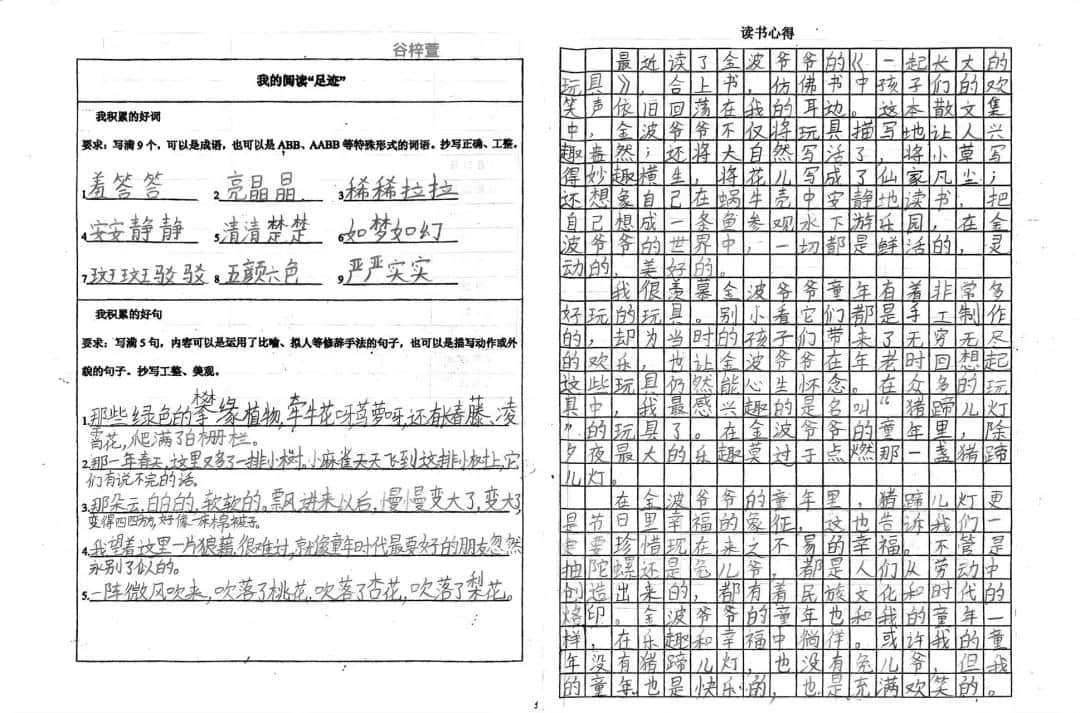 谷梓萱
我的阅读“足迹”
我积累的好词
要求：写满9个，可以是成语，也可以是ABB、AABB等特殊形式的词语。抄写正确、工整。
1.羞答答 2.亮晶晶 3.稀稀拉拉
4.安安静静 5.清清楚楚 6.如梦如幻
7.斑斑驳驳 8.五颜六色 9.严严实实
我积累的好句
要求：写满5句，内容可以是运用了比喻、拟人等修辞手法的句子，也可以是描写动作或外
貌的句子。抄写工整、美观。
1.那些绿色的攀缘植物，牵牛花呀茑萝呀，还有长春藤、凌
霄花，爬满了白栅栏。
2.那一年春天，这里又多了一排小树。小麻雀天天飞到这排小树上，它
们有说不完的话。
3.那朵云，白白的，软软的。飘进来以后，慢慢变大了，变大了
变得四四方方，好像一床棉被子。
4.我望着这里一片狼藉，很难过，就像童年时代最要好的朋友忽然
永别了似的。
5.一阵微风吹来，吹落了桃花，吹落了杏花，吹落了梨花。
读书心得
最近读了金波爷爷的《一起长大的
玩具》，合上书，仿佛书中孩子们的欢
笑声依旧回荡在我的耳边。这本散文集
中，金波爷爷不仅将玩具描写地让人兴
趣盎然；还将大自然写活了，将小草写
得妙趣横生，将花儿写成了仙家凡尘；
还想象自己在蜗牛壳中安静地读书，把
自己想成一条鱼参观水下游乐园，在金
波爷爷的世界中，一切都是鲜活的，灵
动的，美好的。
我很羡慕金波爷爷童年有着非常多
好玩的玩具。别小看它们都是手工制作
的，却为当时的孩子们带来了无穷无尽
的欢乐，也让金波爷爷在年老时回想起
这些玩具仍然能心生怀念。在众多的玩
具中，我最感兴趣的是名叫“猪蹄儿灯
”的玩具了。在金波爷爷的童年里，除
夕夜最大的乐趣莫过于点燃那一盏猪蹄
儿灯。
在金波爷爷的童年里，猪蹄儿灯更
是节日里幸福的象征，这也告诉我们一
定要珍惜现在来之不易的幸福。不管是
抽陀螺还是兔儿爷，都是人们从劳动中
创造出来的，都有着民族文化和时代的
烙印。金波爷爷的童年也和我的童年一
样，在乐趣和幸福中徜徉。或许我的童
年没有猪蹄儿灯，也没有兔儿爷，但我
的童年也是快乐的，也是充满欢笑的。